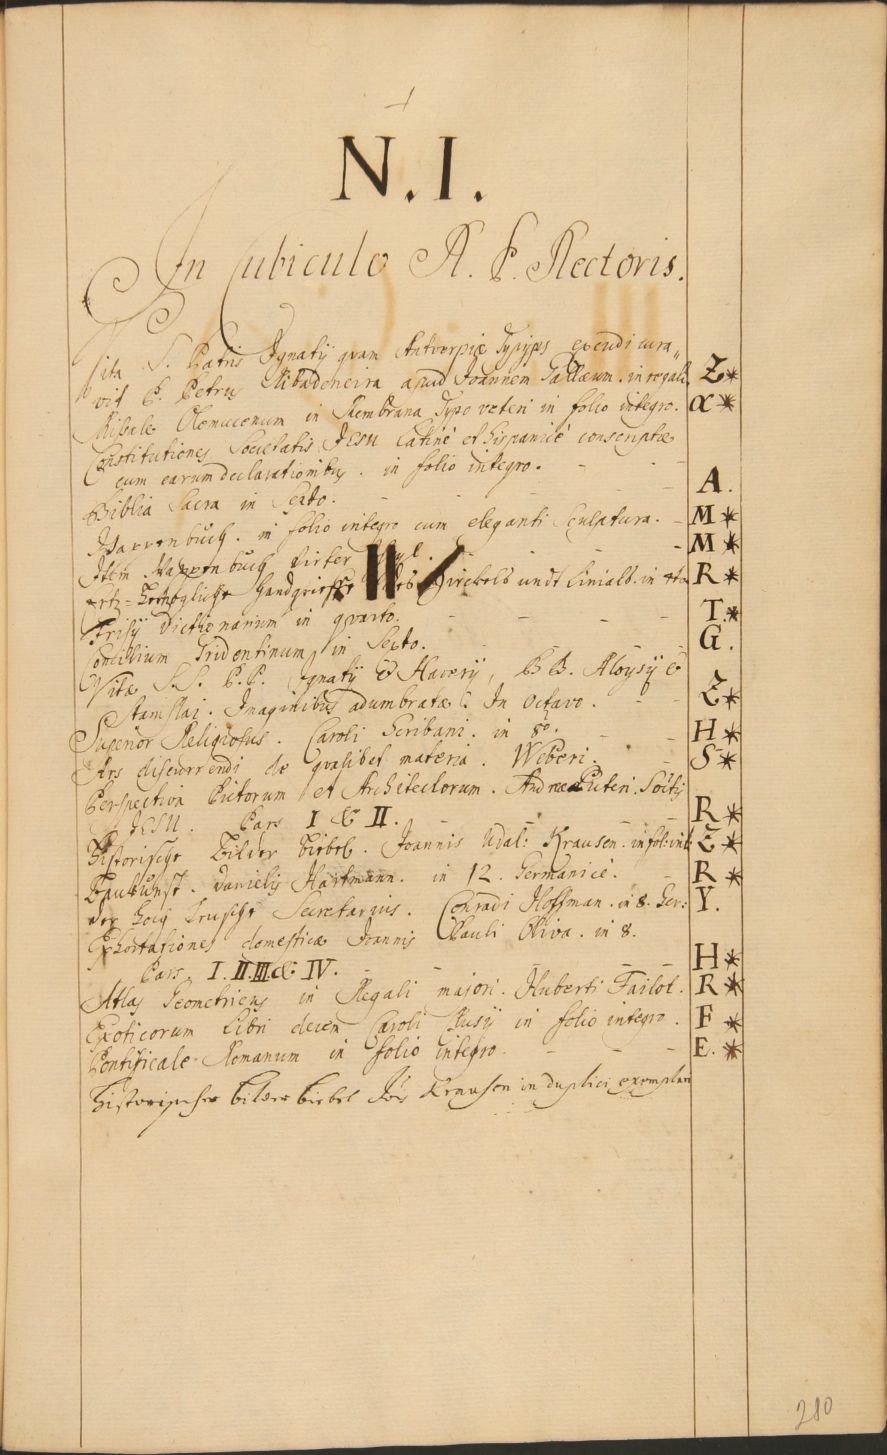 N.I.
In Cubiculo R. P. Rectoris.
Vita S. Patris Ignatij quam Antverpiæ Typijs excudi cura„
vit P. Petrus Ribadeneira apud Joannem Gallæum. in regali. Z*
Missale Olomucenum in Membrana Typo veteri in folio integro. α*
Constitutiones Societatis JESU Latinè et hispanicè conscriptæ
cum earum declarationibus. in folio integro. - - -
Biblia Sacra in Sexto. - - - - A.
Wappenbuch. in folio integro cum eleganti Sculptura. - M*
Item Wappenbuch Vierter - - - M*
Handgrieffe des Zirckels undt Linials. in R*
Frisij Dictionarium in quarto. - - - - T.*
Concilium Tridentinum in Sexto. - G.
Vitæ S.S. P.P. Ignatij & Xaverij, B B. Aloysij &
Stanislai. Imaginibus adumbratæ. In octavo. - - Z*
Superior Religiosus. Caroli Scribani. in 8º. - - H*
Ars discurrendi de qualibet materia. Weberi. - S*
Perspectiva Pictorum et Architectorum. Andreæ Putei. Soctis
JESU. Pars I & II. - - - R*
Historische Bilder Biebel. Joannis Udal: Krausen. in fol: int: Z*
Baukunst. Danielis Hartmann. in 12. Germanicè. - R*
Secretarius. Conradi Hoffman. in 8. Ger: Y.
Exhortationes domesticæ Joannis Pauli Oliva. in 8.
Pars I. II. III & IV. - - - - H*
Atlas Geometricus in Regali majori. Huberti Jailot. R*
Exoticorum Libri decem Caroli Clusij in folio integro. F*
Pontificale Romanum in folio integro. - - - E.*
Historischer Bilder Biebel Krausen in duplici exemplari
280